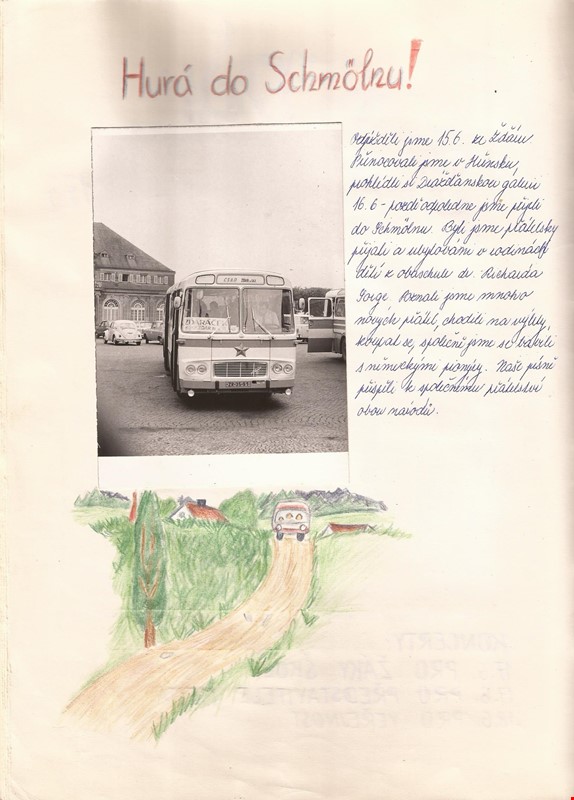 Hurá do Schmölnu!
Odjížděli jsme 15.6. ze Žďáru
Přenocovali jsme v Hřensku,
prohlédli si Drážďanskou galerii
16.6 - pozdě odpoledne jsme přijeli
do Schmölnu. Byli jsme přátelsky
přijati a ubytováni v rodinách
dětí z obaschule dr. Richarda
Sorge. Poznali jsme mnoho
nových přátel, chodili na výlety,
koupat se, společně jsme se bavili
s německými pionýry. Naše písně
přispěly k společnému přátelství
obou národů.
ČSAD
ŽĎÁRÁČEK
ZR-35-61
KONCERTY:
PRO ŽÁKY ŠKOL
PRO PŘEDSTAVITELE
PRO VEŘEJNOST